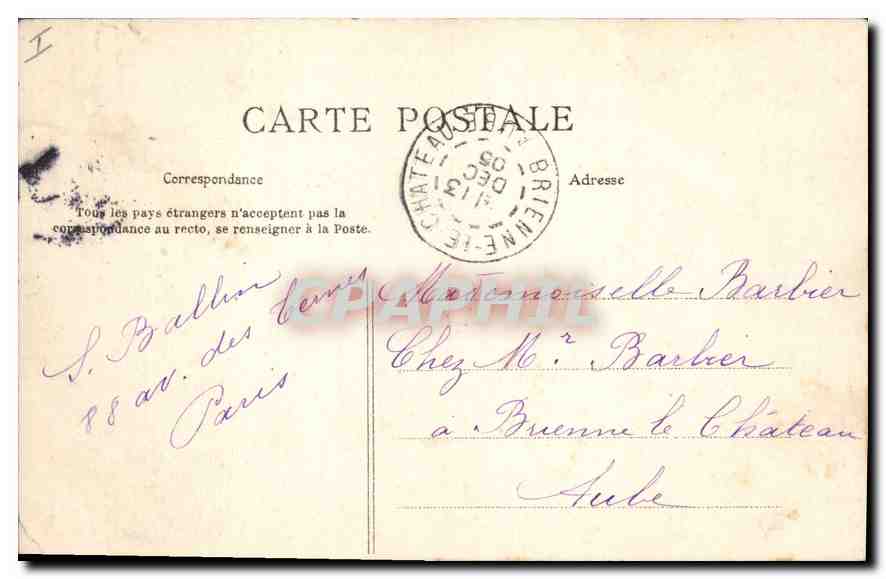 I
CARTE POSTALE
Correspondance
Tous les pays étrangers n'acceptent pas la
correspondance au recto, se renseigner à la Poste.
Adresse
BRIENNE-LE-CHATEAU AUBE
13
DEC
05
CPAPHIL
S. Ballion
88 av. des Ternes
Paris
Mademoiselle Barbier
Chez Mr Barbier
à Brienne le Château
Aube